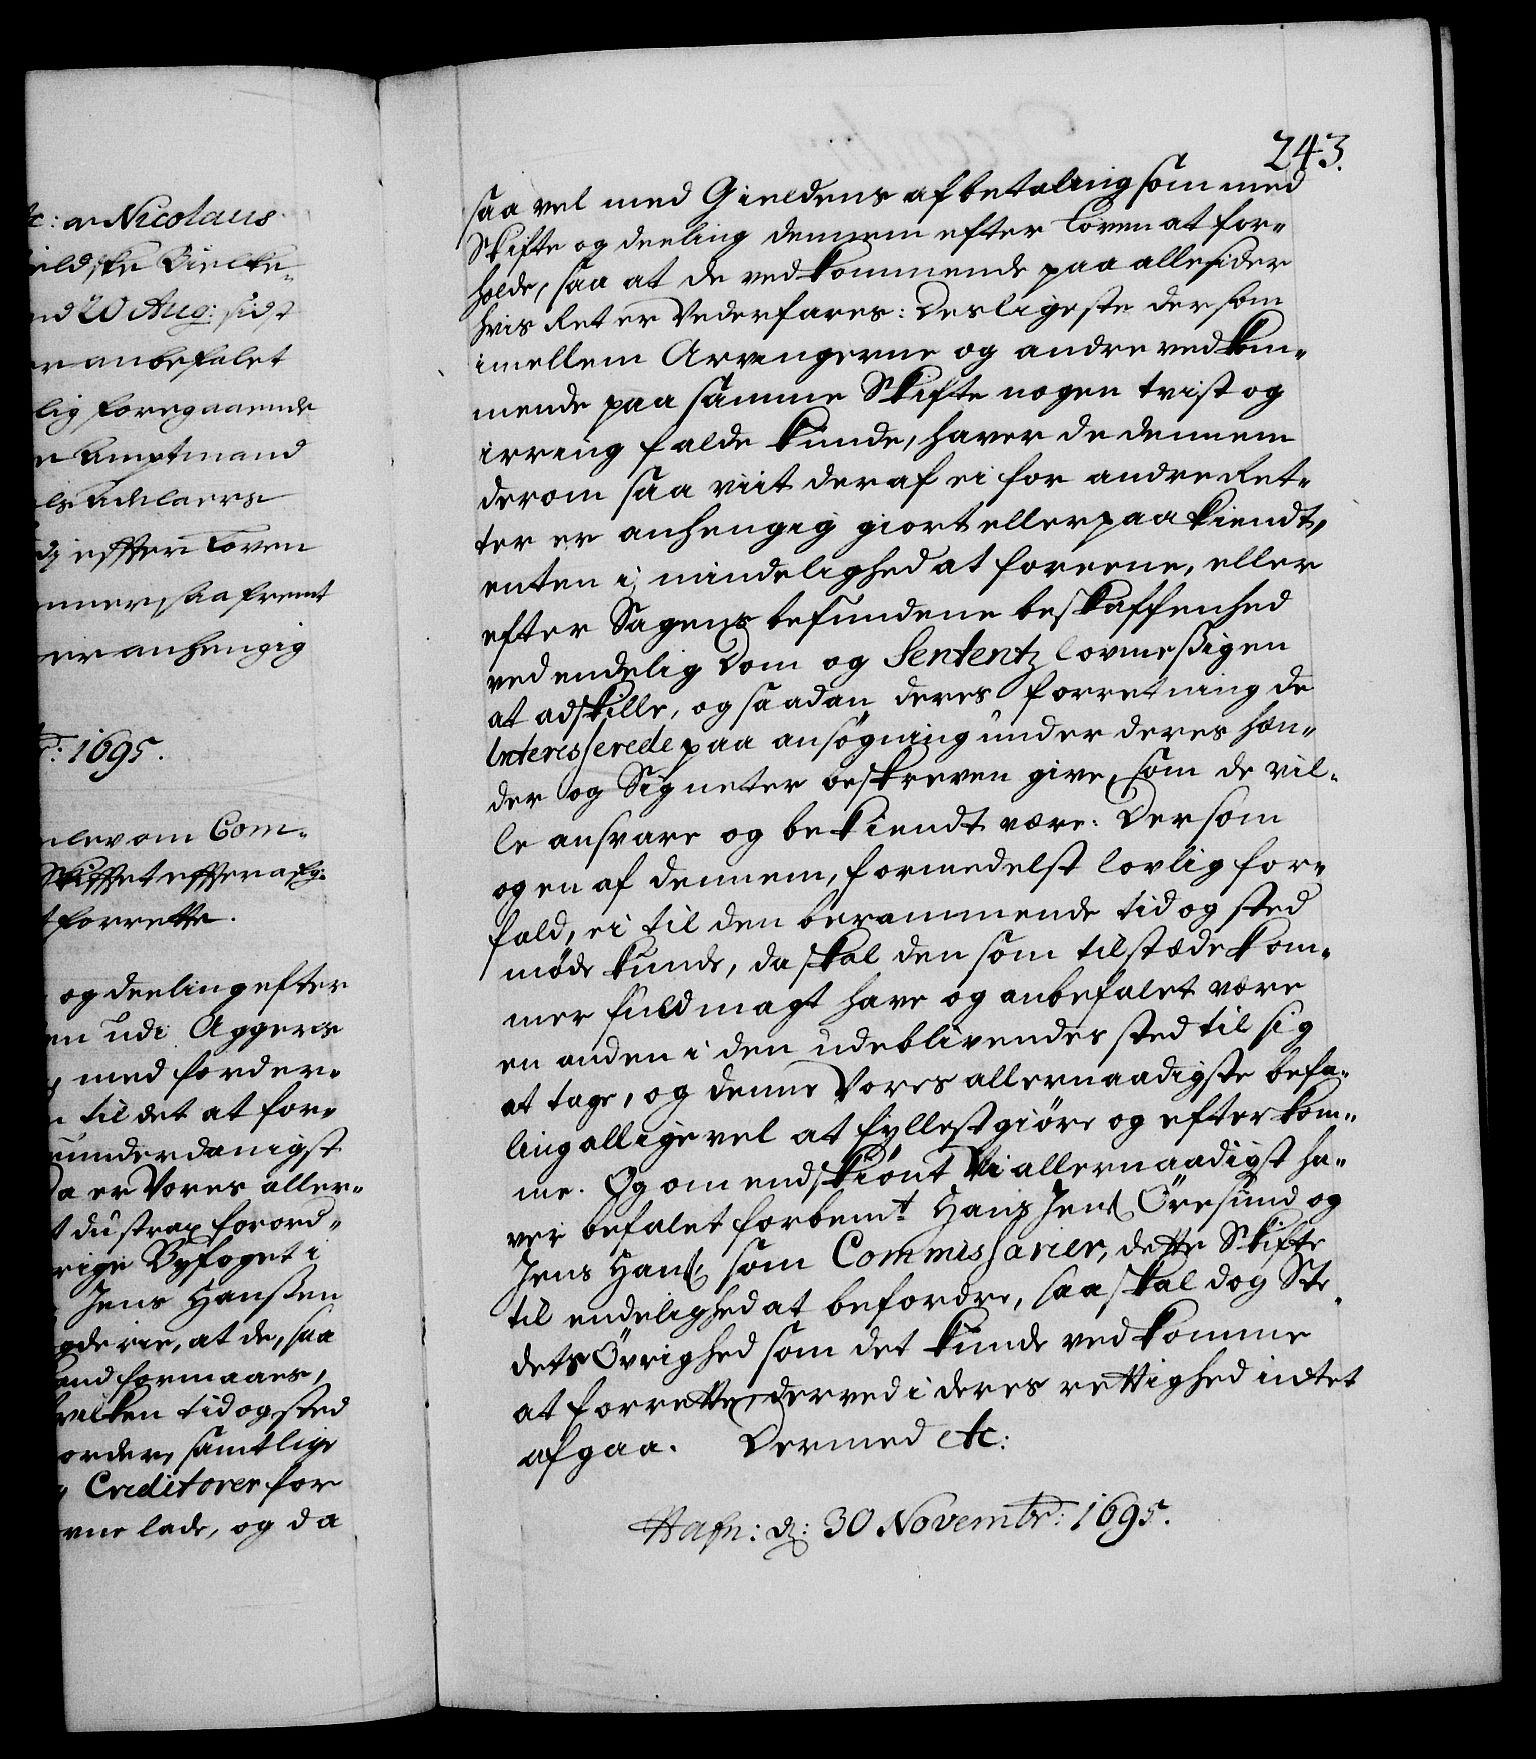 c: a Nicolaus
ieldske Bielke¬
nd 20 Aug: sidst
er anbefalet
lig foregaaende
Amptmand
ls Adelaers
efter Loven
saa fremt
er anhengig
r: 1695.
om Com¬
Skiftet efter afg:
forrette.
og deeling efter
en udi Aggers
med forder¬
til det at for¬
underdanigst
a er Vores aller¬
t du strax forord¬
rige Byfoget i
Jens Hanßen
gderie, at de, saa
and formaaer,
vilken tid og sted
order, samtlige
Creditorer for
rne lade, og da
243.
saa vel med Gieldens afbetaling som med
Skifte og deeling dennem efter Loven at for¬
holde, saa at de vedkommende paa alle sider
hvis Ret er Vederfares: Desligeste dersom
imellem Arvingerne og andre vedkom¬
mende paa samme Skifte nogen tvist og
irring falde kunde, haver de dennem
derom saa viit deraf ei for andre Ret¬
ter er anhengig giort eller paakiendt,
enten i mindelighed at foreene, eller
efter Sagens befundene beskaffenhed
ved endelig Dom og Sententz lovmeßigen
at adskille, og saadan deres forretning de
Interesserede paa ansøgning under deres hæn¬
der og Signeter beskreven give, som de vil¬
le ansvare og bekiendt være: Dersom
ogen af dennem, formedelst lovlig for¬
fald, ei til den berammende tid og sted
møde kunde, da skal den som tilstæde kom¬
mer fuldmagt have og anbefalet være
en anden i den udeblivendes sted til sig
at tage, og denne Vores allernaadigste befa¬
ling alligevel at fyllestgiøre og efterkom¬
me. Og omendskiønt Vi allernaadigst ha¬
ver befalet forbemt. Hans Jenß. Öresund og
Jens Hanß. som Commissarier, dette Skifte
til endelighed at befordre, saa skal dog Ste¬
dets Øvrighed som det kunde vedkomme
at forrette, derved i deres rettighed intet
afgaa. Dermed etc:
Hafn: d: 30 Novembr: 1695.